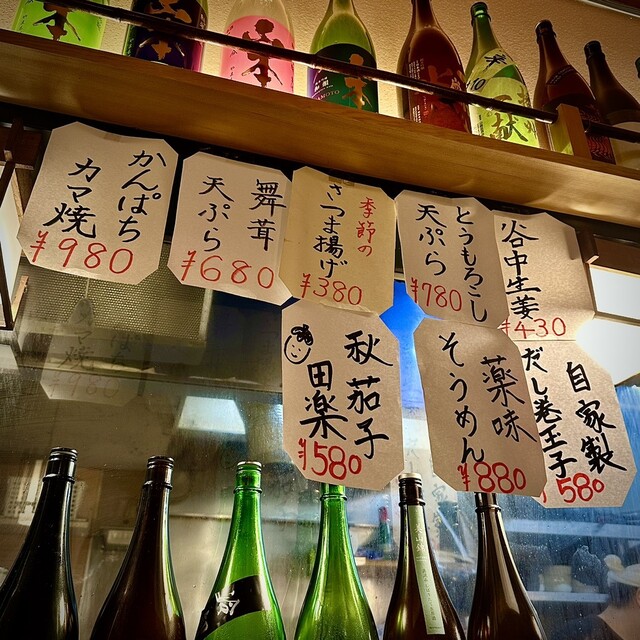 かんぱち
カマ焼
¥980
舞茸
天ぷら
¥680
季節の
さつま揚げ
¥380
とうもろこし
天ぷら
¥780
谷中生姜
¥430
秋茄子
田楽
¥580
薬味
そうめん
¥880
自家製
だし巻玉子
¥580